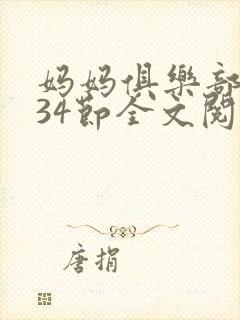 妈妈俱樂部
34節全文閱
唐捐